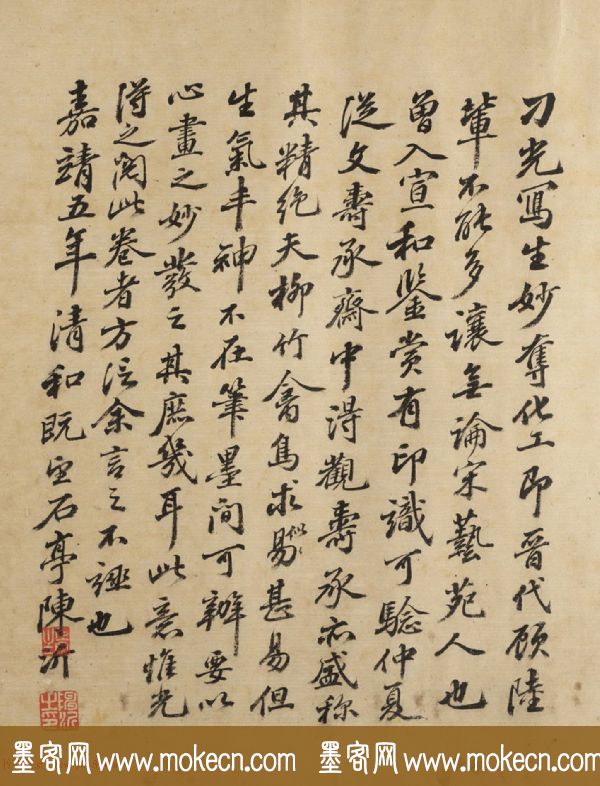 刁光寫生妙奪化工即晉代顧陸
輩不能多讓無論宋藝苑人也
曾入宣和鑒賞有印識可驗仲夏
從文壽承齋中得觀壽承亦盛稱
其精絶夫柳竹禽鳥求似易甚易但
生氣丰神不在筆墨間可辦要以
心畫之妙發之其庶幾耳此意惟光
得之閱此卷者方信余言之不誣也
嘉靖五年清和既望石亭陳沂
墨客网www.mokecn.com 墨客网www.mokecn.com